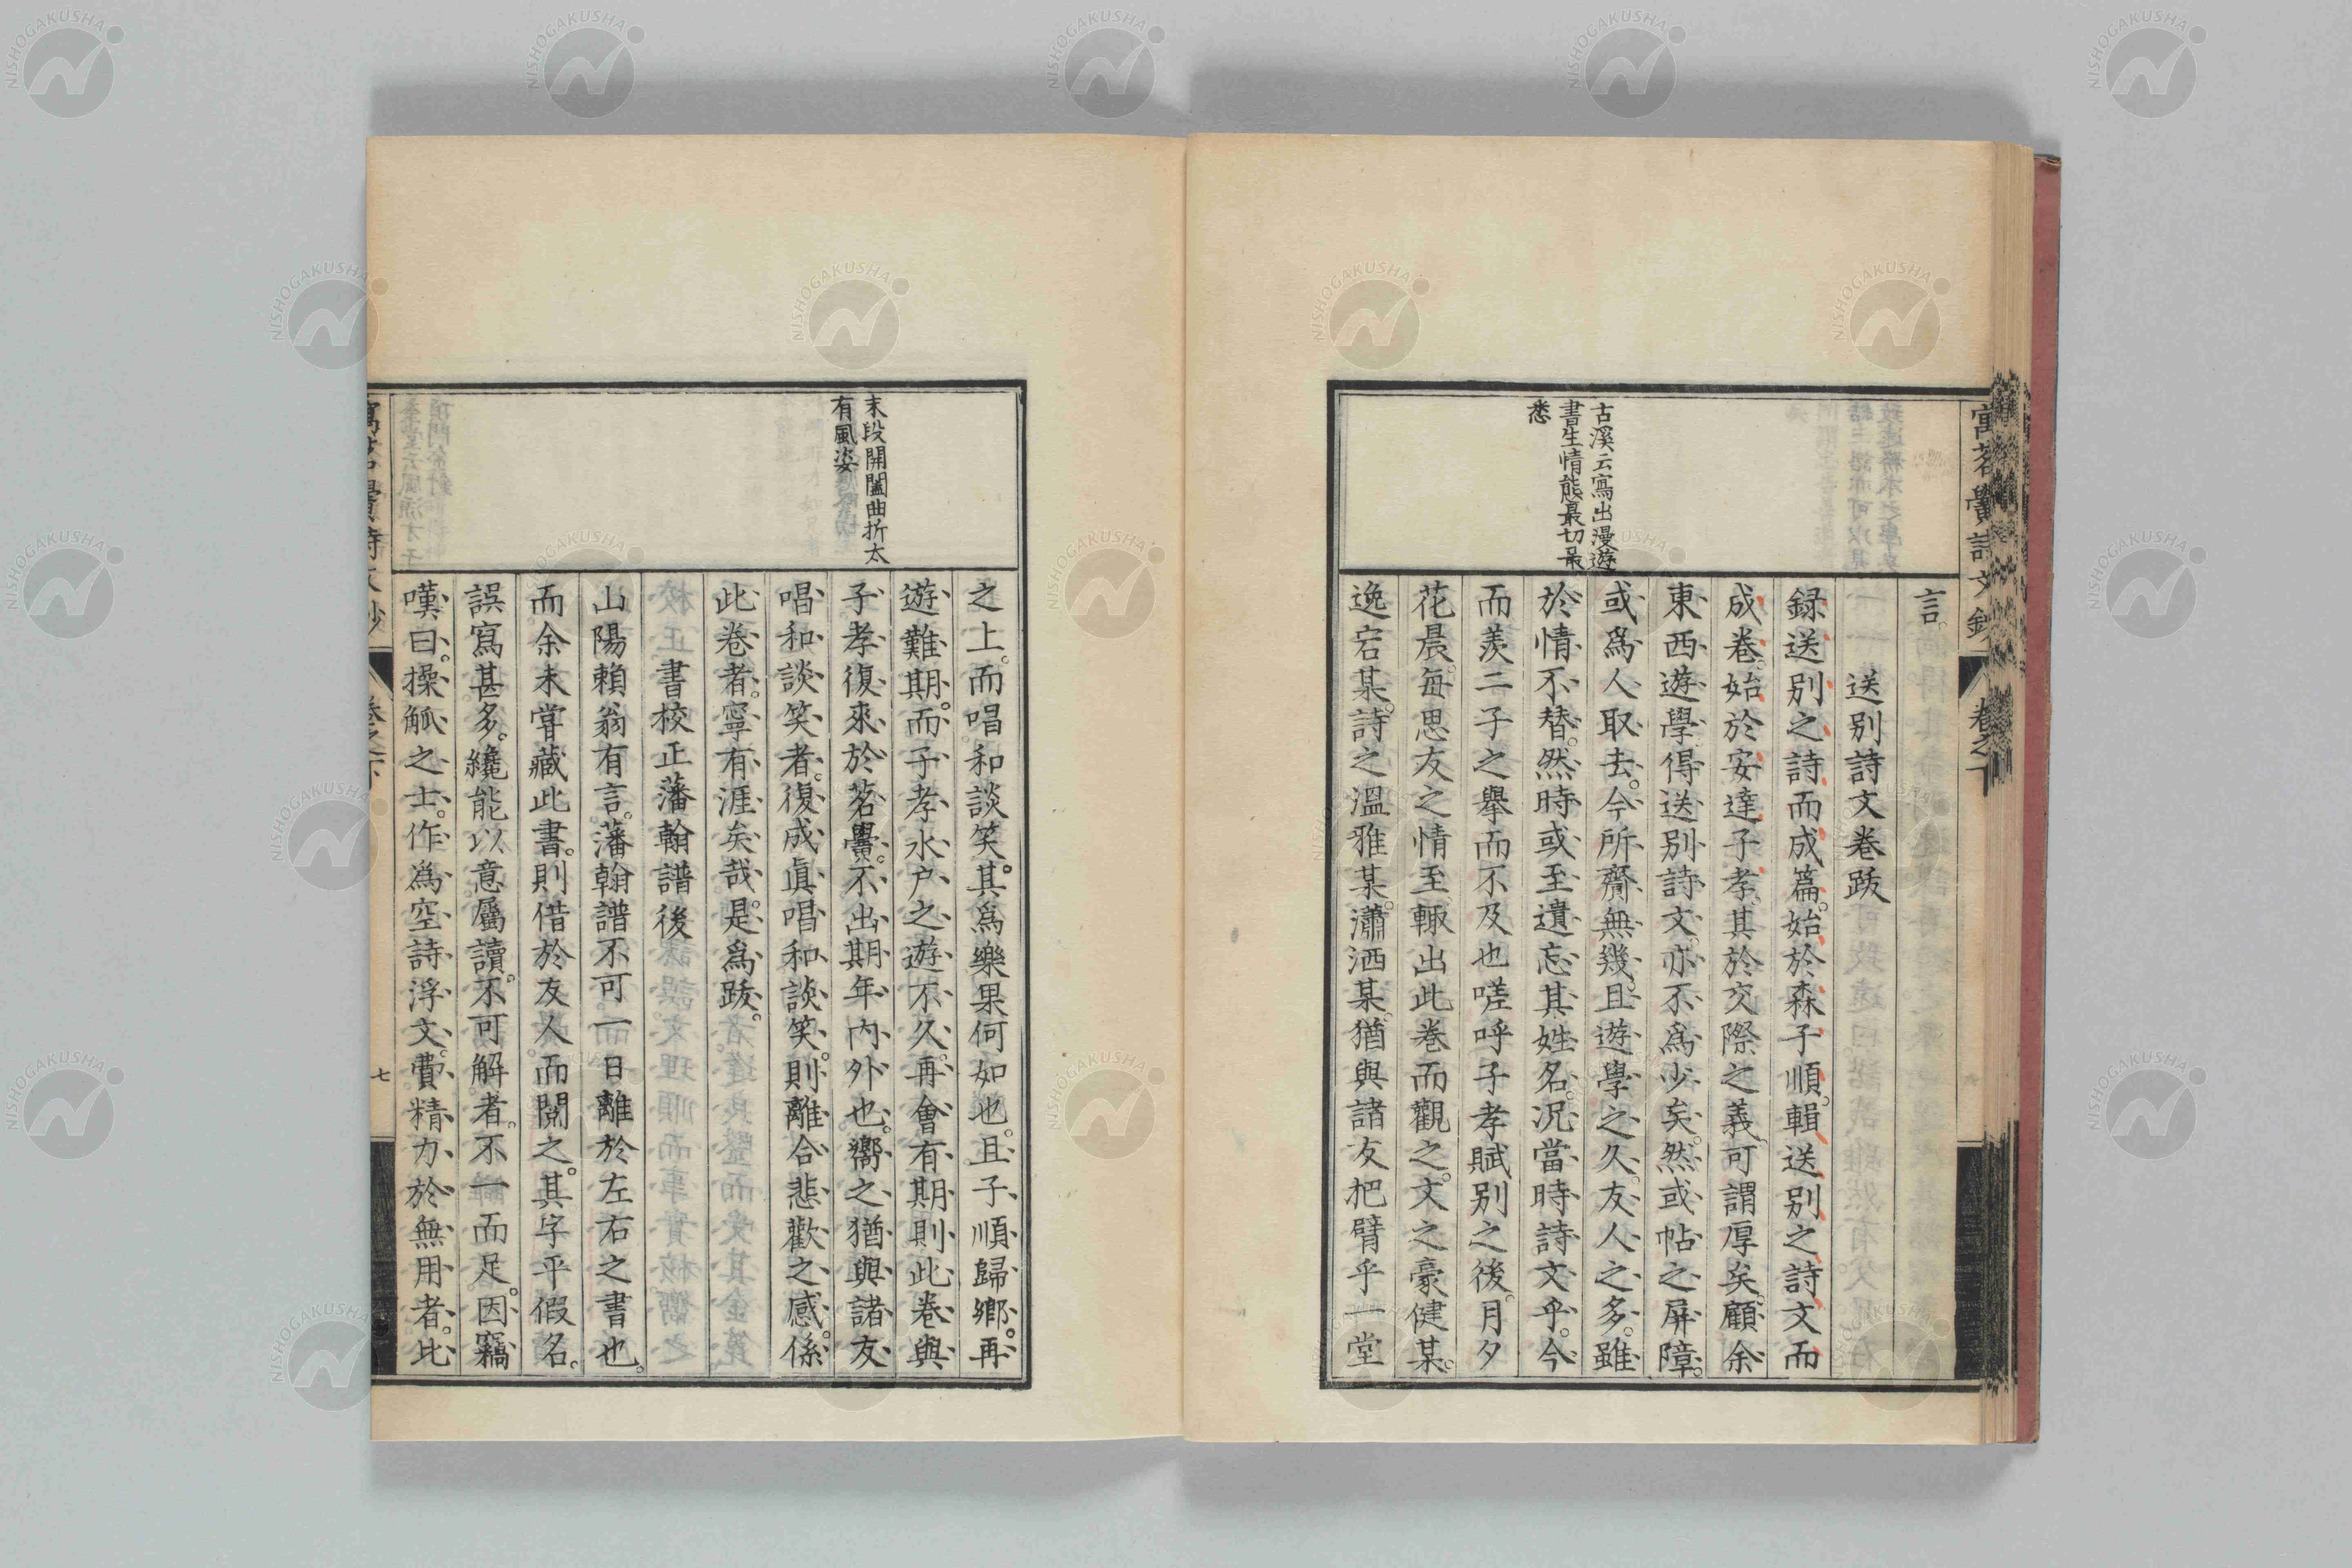 寓茗黌詩文鈔
卷之下
古溪云寫出漫遊
書生情態最切最
悉
言。
送別詩文卷跋
録送別之詩而成篇。始於森子順。輯送別之詩文而
成卷。始於安達子孝。其於交際之義。可謂厚矣。顧余
東西遊學得送別詩文。亦不爲少矣。然或帖之屏障。
或爲人取去。今所齎無幾。且遊學之久。友人之多。雖
於情不替。然時或至遺忘其姓名。況當時詩文乎。今
而羨二子之擧而不及也嗟呼子孝賦別之後。月夕
花晨。毎思友之情至輙出此卷而觀之。文之豪健某。
逸宕某。詩之溫雅某。瀟洒某。猶與諸友把臂乎一堂
末段開闔曲折太
有風姿
之上。而唱和談笑。其爲樂果何如也。且子順歸鄉。再
遊難期。而子孝水戸之遊不久。再會有期則此卷與
子孝復來於茗黌。不出期年內外也。嚮之猶與諸友
唱和談笑者。復成眞唱和談笑。則離合悲歡之感。係
此卷者。寧有涯矣哉。是爲跋。
書校正藩翰譜後
山陽賴翁有言。藩翰譜不可一日離於左右之書也。
而余未甞藏此書。則借於友人而閱之。其字平假名。
誤寫甚多。纔能以意屬讀。不可解者。不一而足。因竊
嘆曰。操觚之士。作爲空詩浮文。費精力於無用者。比
七